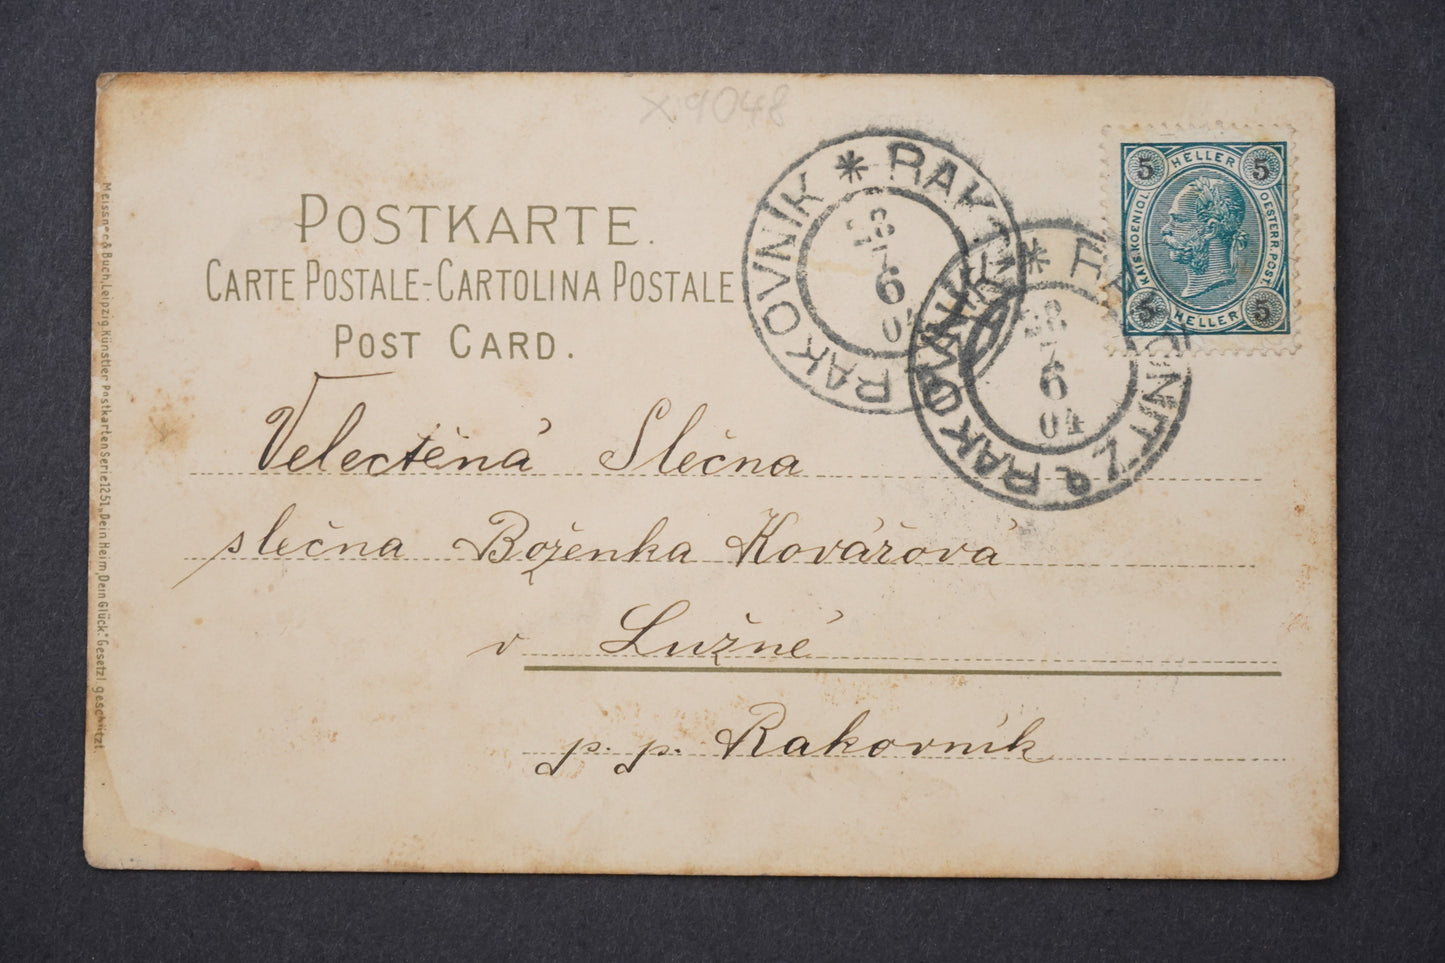 X 9048
POSTKARTE.
CARTE POSTALE-CARTOLINA POSTALE
POST CARD.
RAKONITZ * RAKOVNÍK
28
7
6
04
RAKONITZ * RAKOVNÍK
28
7
6
04
5 HELLER 5
KAIS.KOENIGL. OESTERR.POST.
5 HELLER 5
Velectěná Slečna
slečna Boženka Kovářová
v Lužné
p. p. Rakovník
Meissner & Buch, Leipzig. Künstler Postkarten Serie 1251 „Dein Heim, Dein Glück." Gesetzl. geschützt.